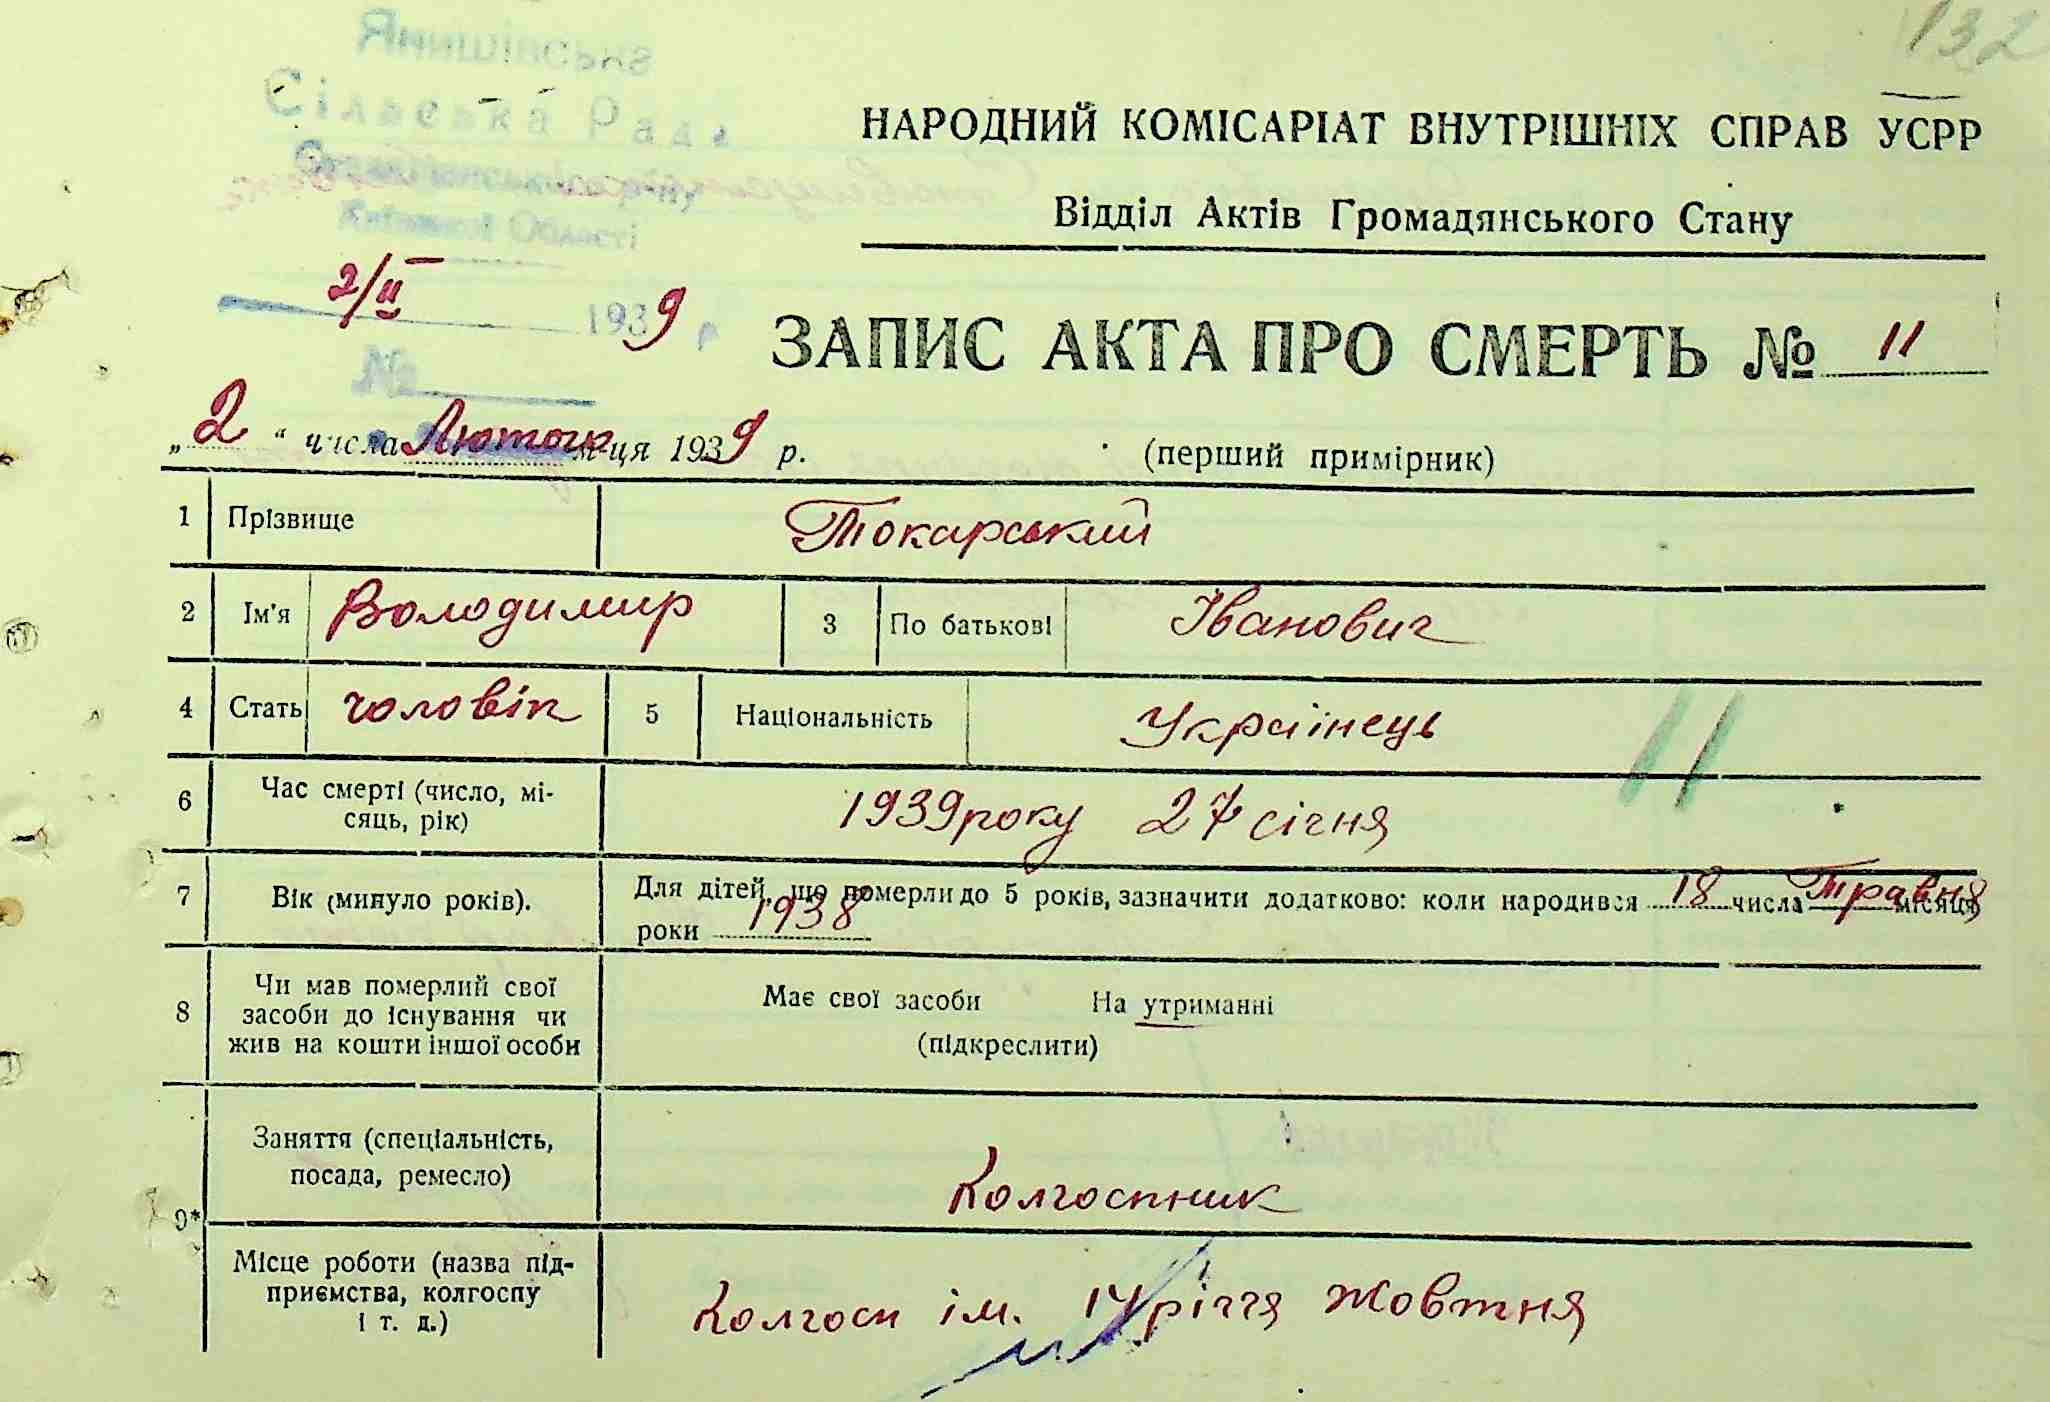 132
Янишівська
Сільська Рада
Київської Області
НАРОДНИЙ КОМІСАРІАТ ВНУТРІШНІХ СПРАВ УСРР
Відділ Актів Громадянського Стану
2/II 1939 р
№
ЗАПИС АКТА ПРО СМЕРТЬ № 11
„2“ числа Лютого м-ця 1939 р. (перший примірник)
1 Прізвище Токарський
2 Ім'я Володимир 3 По батькові Іванович
4 Стать чоловік 5 Національність Українець
11
6 Час смерті (число, мі-
сяць, рік) 1939 року 27 січня
7 Вік (минуло років). Для дітей, що померли до 5 років, зазначити додатково: коли народився 18 числа Травня місяця
роки 1938
8 Чи мав померлий свої
засоби до існування чи
жив на кошти іншої особи
Має свої засоби На утриманні
(підкреслити)
9* Заняття (спеціальність,
посада, ремесло) Колгоспник
Місце роботи (назва під-
приємства, колгоспу
і т. д.) Колгосп ім. 17 річчя Жовтня